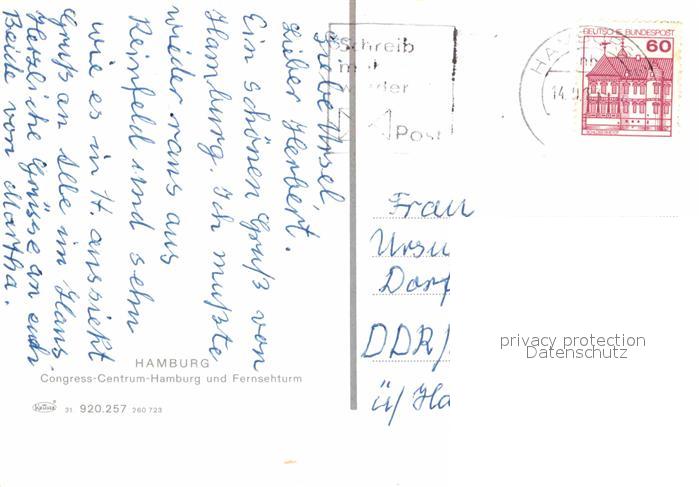 Liebe Ursel,
Lieber Herbert.
Ein schönen Gruß von
Hamburg. Ich mußte
wieder raus aus
Reinfeld und sehn
wie es in H. aussieht
Gruß an Alle im Haus
Herzliche Grüsse an euch
Beide von Martha.
HAMBURG
Congress-Centrum-Hamburg und Fernsehturm
Krüger 31 920.257 260 723
Schreib
mal
wieder
Post
HA
14.9
DEUTSCHE BUNDESPOST
60
Frau
Ursu
Dorf
DDR/
ü/ Ha
privacy protection
Datenschutz